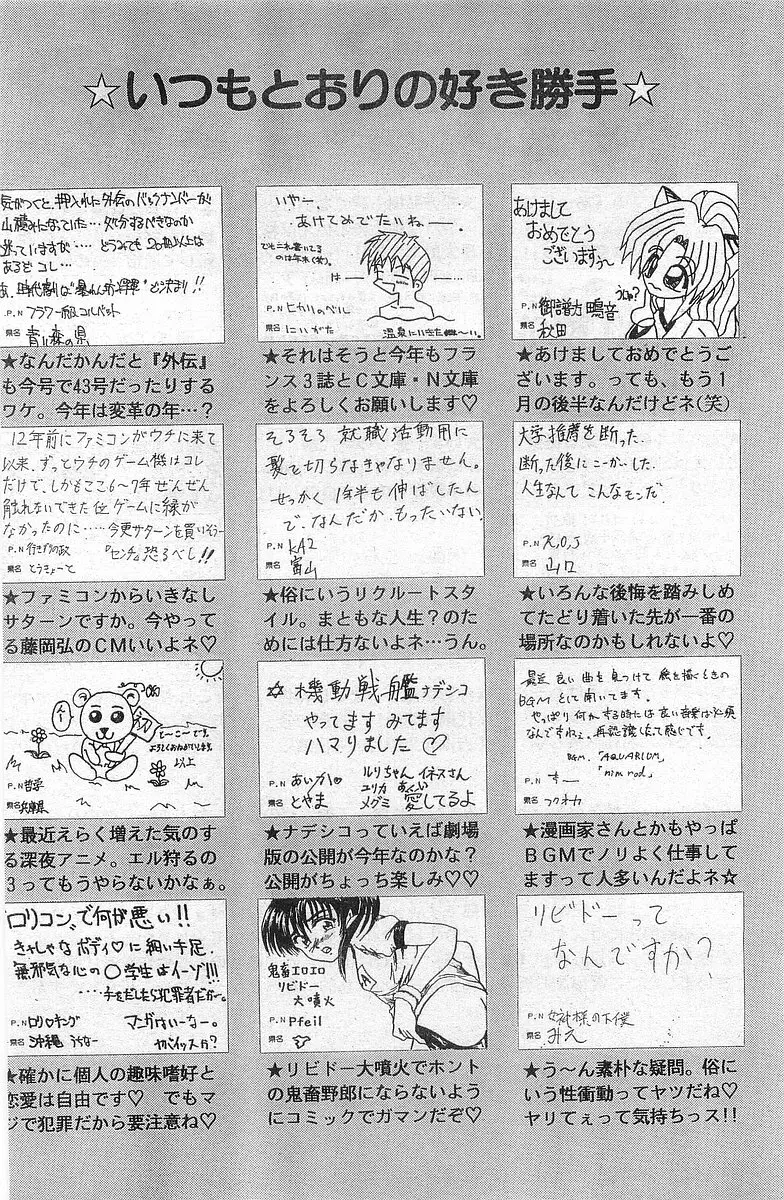 ☆いつもとおりの好き勝手☆
あけまして
おめでとう
ございますぅ~
うにゅ?
P.N 御諸方 鴫音
県名 秋田
★あけましておめでとうご
ざいます。っても、もう1
月の後半なんだけどネ(笑)
いやー、
あけてめでたいねー。
でもこれ書いてる
のは年末(笑)。
はー
P.N ヒカリのベル
県名 にいがた
温泉にいきたい~。
★それはそうと今年もフラ
ンス3誌とC文庫・N文庫
をよろしくお願いします♡
気がつくと、押入れに外伝のバックナンバーが
山積みになっていた…処分するべきなのか
迷っていますが…どうみても20冊以上は
あるぞコレ…
P.N フラワー級コルベット
県名 青い森の県
★なんだかんだと『外伝』
も今号で43号だったりする
ワケ。今年は変革の年…?
大学推薦を断った。
断った後にこーかいした。
人生なんてこんなモンだ。
P.N K,O,J
県名 山口
★いろんな後悔を踏みしめ
てたどり着いた先が一番の
場所なのかもしれないよ♡
そろそろ 就職活動用に
髪を切らなきゃなりません。
せっかく1年半も伸ばしたん
で、なんだか、もったいない。
P.N KAZ
県名 富山
★俗にいうリクルートスタ
イル。まともな人生?のた
めには仕方ないよネ…うん。
12年前にファミコンがウチに来て
以来、ずっとウチのゲーム機はコレ
だけで、しかもここ6~7年ぜんぜん
触れないできた位ゲームに縁が
なかったのに……今更サターンを買いそう…
P.N 行きずりの政
『センチ』恐るべし!!
県名 とうきょーと
★ファミコンからいきなし
サターンですか。今やって
る藤岡弘のCMいいよネ♡
最近 良い曲を見つけて 絵を描くときの
BGMとして聞いてます。
やっぱり何かする時には良い音楽は必須
なんですねぇ。再認識したって感じです。
BGM.「AQUARIUM」
「nim rod」
P.N ちー
県名 フクオカ
★漫画家さんとかもやっぱ
BGMでノリよく仕事して
ますって人多いんだよネ☆
☆ 機動戦艦ナデシコ
やってます みてます
ハマりました ♡
P.N あいか♡
県名 とやま
ルリちゃん イネスさん
ユリカ
メグミ 愛してるよ
★ナデシコっていえば劇場
版の公開が今年なのかな?
公開がちょっち楽しみ♡♡
初
とーこーです。
よろしくおねがいします。
以上
P.N 哲学
県名 兵庫県
★最近えらく増えた気のす
る深夜アニメ。エル狩るの
3ってもうやらないかなぁ。
リビドーって
なんですか?
P.N 女神様の下僕
県名 みえ
★う~ん素朴な疑問。俗に
いう性衝動ってヤツだね♡
ヤリてぇって気持ちっス!!
鬼畜エロエロ
リビドー
大噴火
P.N Pfeil
県名
★リビドー大噴火でホント
の鬼畜野郎にならないよう
にコミックでガマンだぞ♡
"ロリコン"で何が悪い!!
きゃしゃなボディ♡に細い手足、
無邪気な心の〇学生はイーゾ!!!
……手をだしたら犯罪者だがー。
P.N ロリ♡キング
マンガはいーなー。
県名 沖縄 うちなー
ヤバイッスか?
★確かに個人の趣味嗜好と
恋愛は自由です♡ でもマ
ジで犯罪だから要注意ね♡